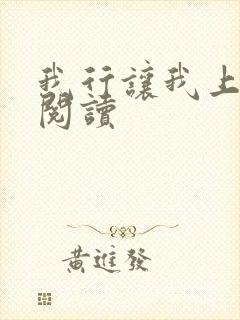 我行讓我上
閱讀
黃進發